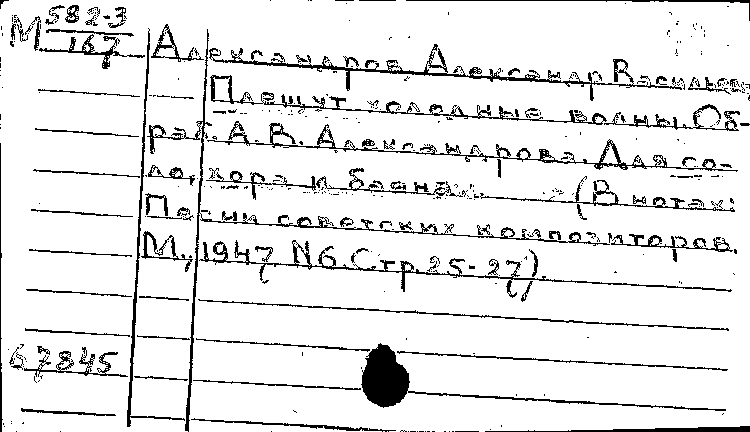 М 582-3
167
Александров, Александр Васильев
Плещут холодные волны. Об-
раб. А. В. Александрова. Для со-
ло, хора и баяна. (В нотах:
Песни советских композиторов.
М., 1947 N6. Стр. 25-27).
67845